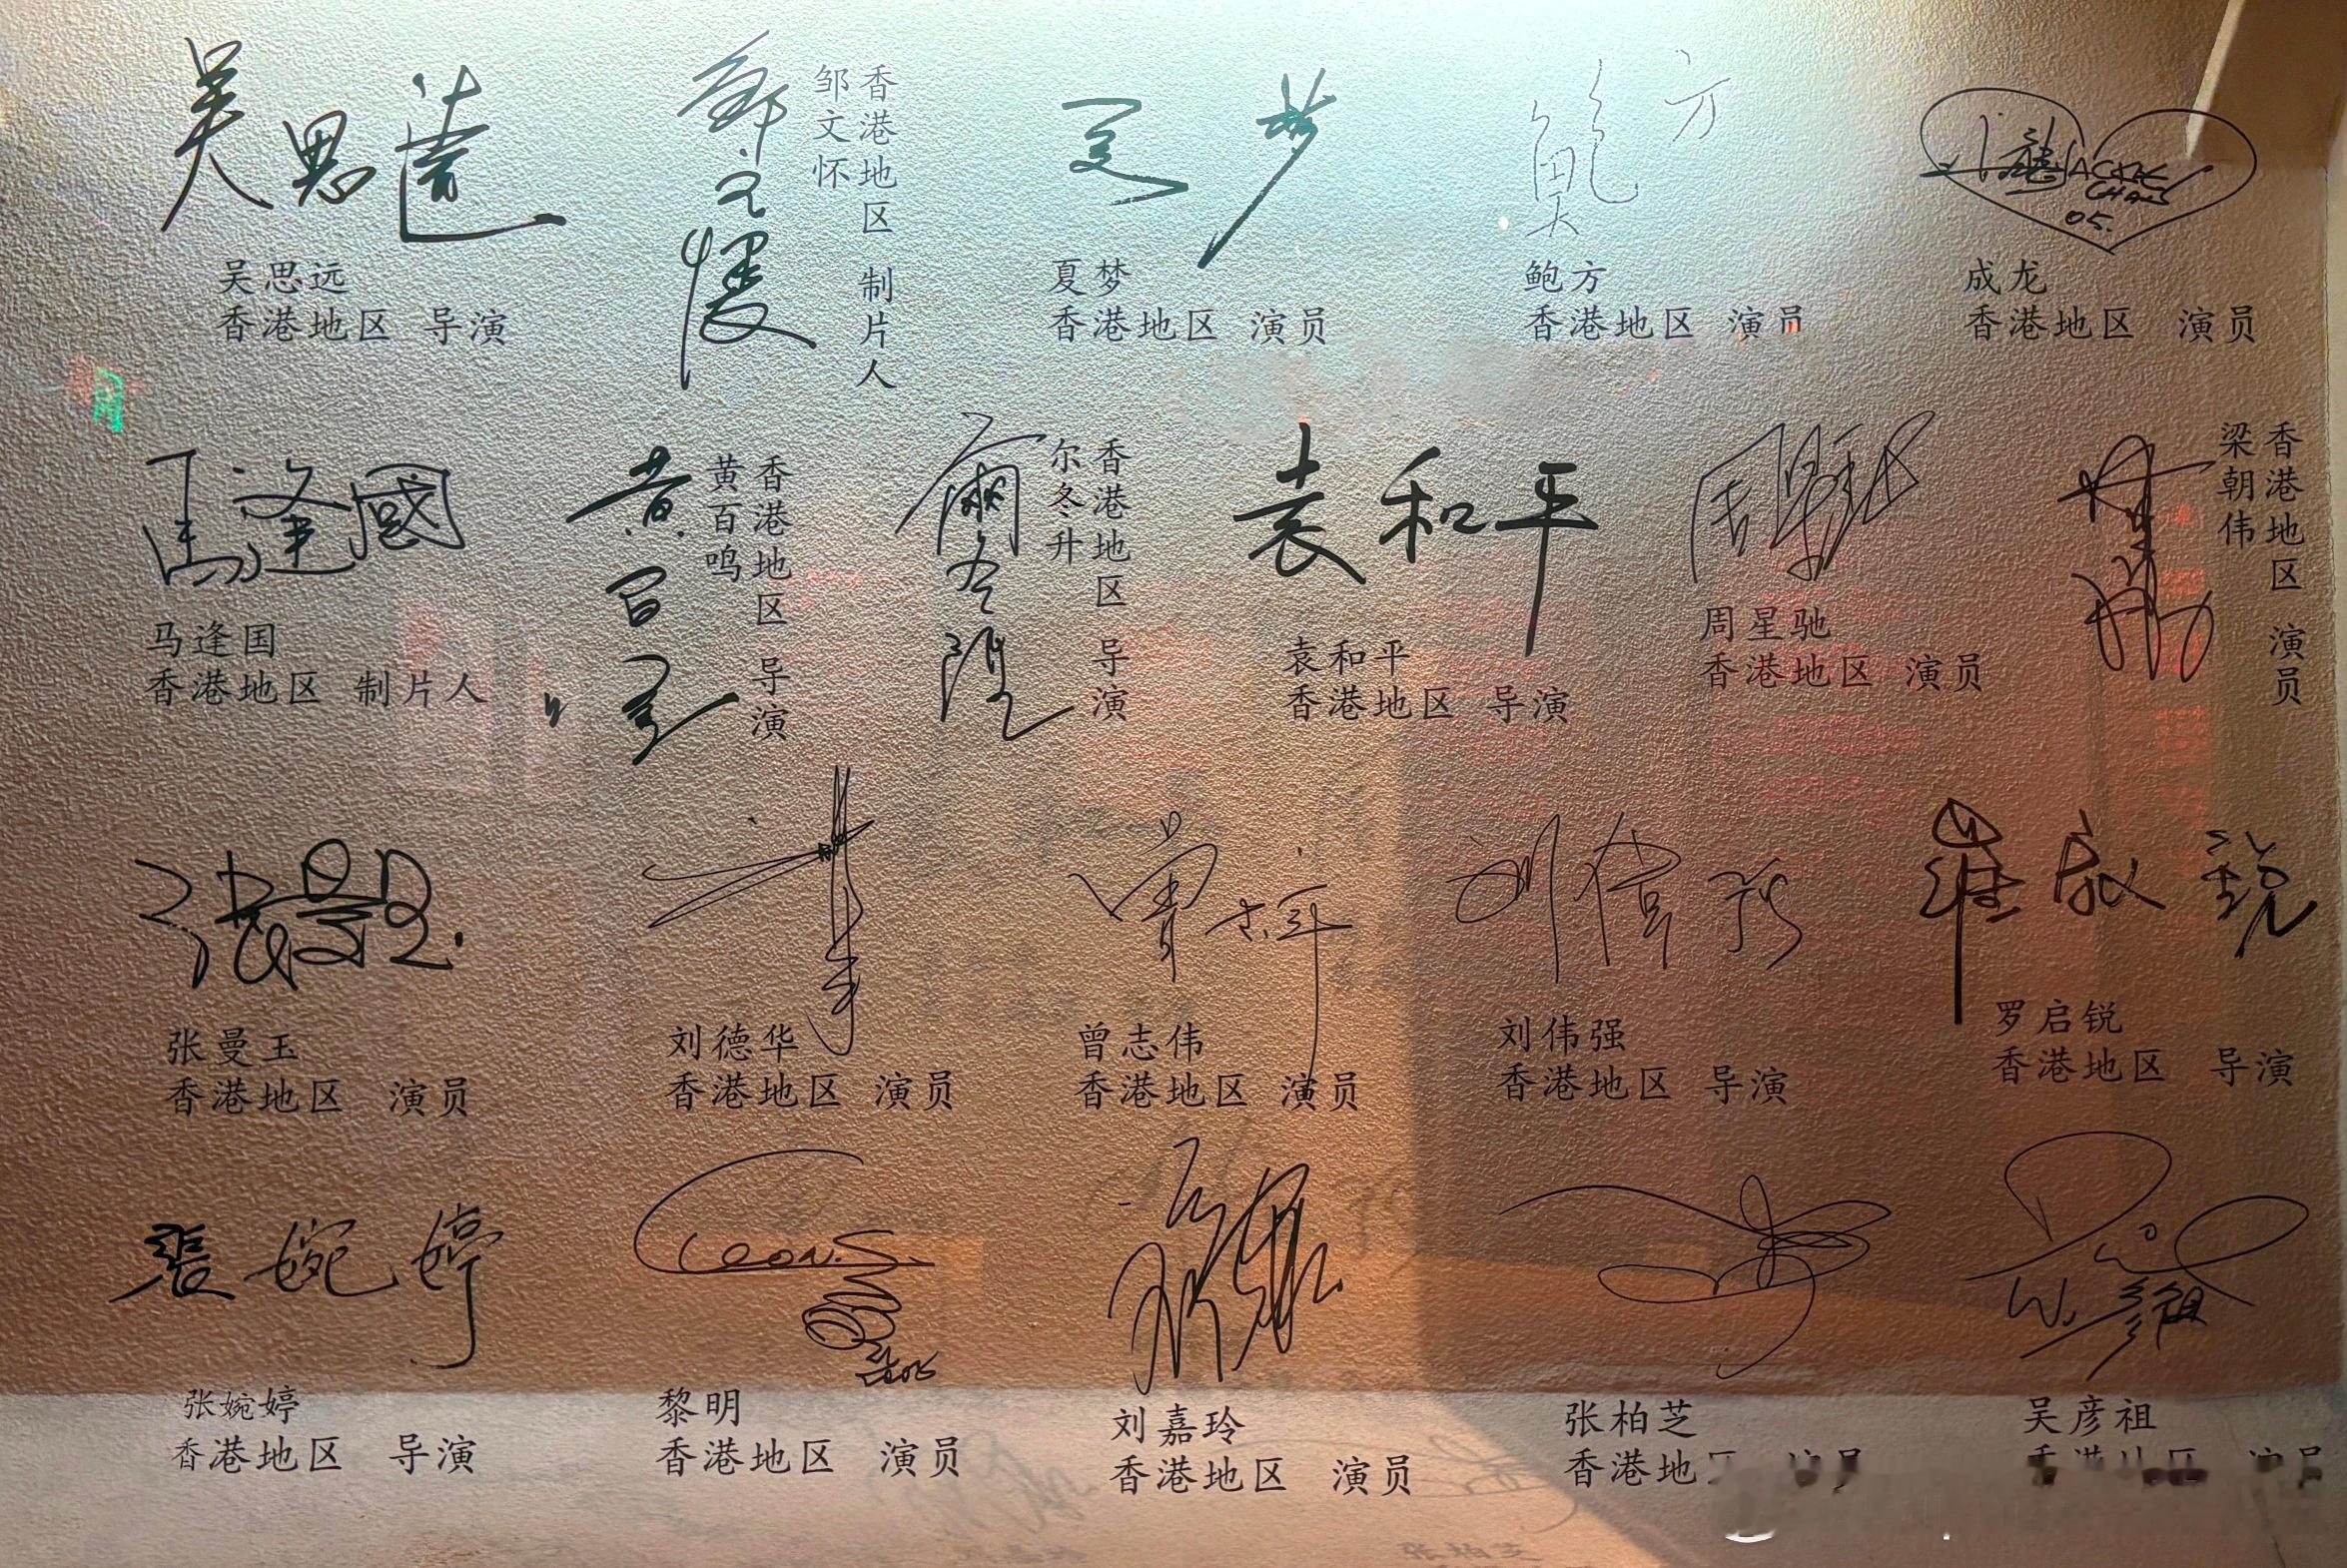 吴思遠
吴思远
香港地区 导演
鄒文懷
香港地区 制片人
邹文怀
夏梦
夏梦
香港地区 演员
鲍方
鲍方
香港地区 演员
JACKIE
CHAN
05.
成龙
香港地区 演员
馬逢國
马逢国
香港地区 制片人
黄百鸣
香港地区 导演
黄百鸣
爾冬陞
香港地区 导演
尔冬升
袁和平
袁和平
香港地区 导演
周星驰
周星驰
香港地区 演员
香港地区 演员
梁朝伟
张曼玉
张曼玉
香港地区 演员
刘德华
香港地区 演员
曾志伟
香港地区 演员
刘偉强
刘伟强
香港地区 导演
罗启锐
香港地区 导演
張婉婷
张婉婷
香港地区 导演
Leon.
黎明
香港地区 演员
刘嘉玲
香港地区 演员
张柏芝
香港地区 演员
彦祖
吴彦祖
香港地区 演员